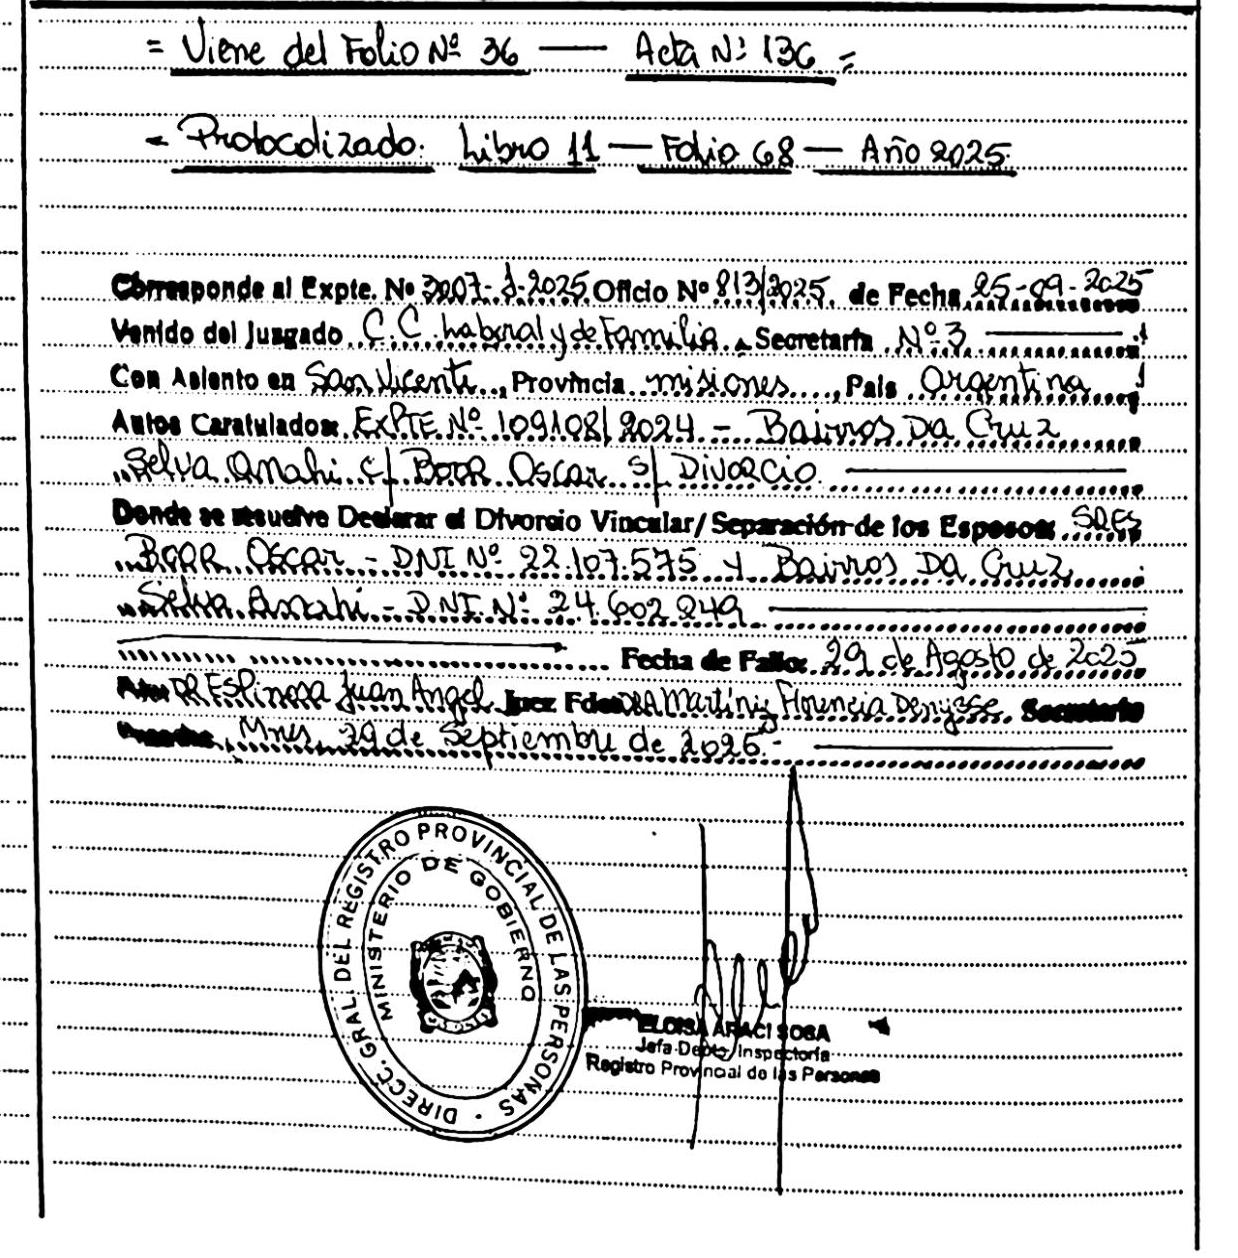 = Viene del Folio Nº 36 — Acta Nº 136 =
= Protocolizado: Libro 11 — Folio 68 — Año 2025.
Corresponde al Expte. Nº 3207-J-2025 Oficio Nº 813/2025 de Fecha 25-09-2025
Venido del Juzgado C.C. Laboral y de Familia. Secretaría Nº 3
Con Asiento en San Vicente, Provincia misiones, País Argentina
Autos Caratulados: EXPTE Nº 109108/2024 - Bairros Da Cruz
Selva Anahi c/ Boar Oscar s/ Divorcio
Donde se resuelve Declarar el Divorcio Vincular/Separación de los Esposos: SRES
Boar Oscar - DNI Nº 22.107.575 y Bairros Da Cruz
Selva Anahi - DNI Nº 24.602.249
Fecha de Fallo: 29 de Agosto de 2025
Fdo: DR Espinosa Juan Angel Juez Fdo: DRA Martinez Florencia Denysse Secretario
Posadas, Mnes, 29 de Septiembre de 2025.-
DIRECC. GRAL. DEL REGISTRO PROVINCIAL DE LAS PERSONAS
MINISTERIO DE GOBIERNO
ELOISA ARACI SOSA
Jefa Depto. Inspectoría
Registro Provincial de las Personas